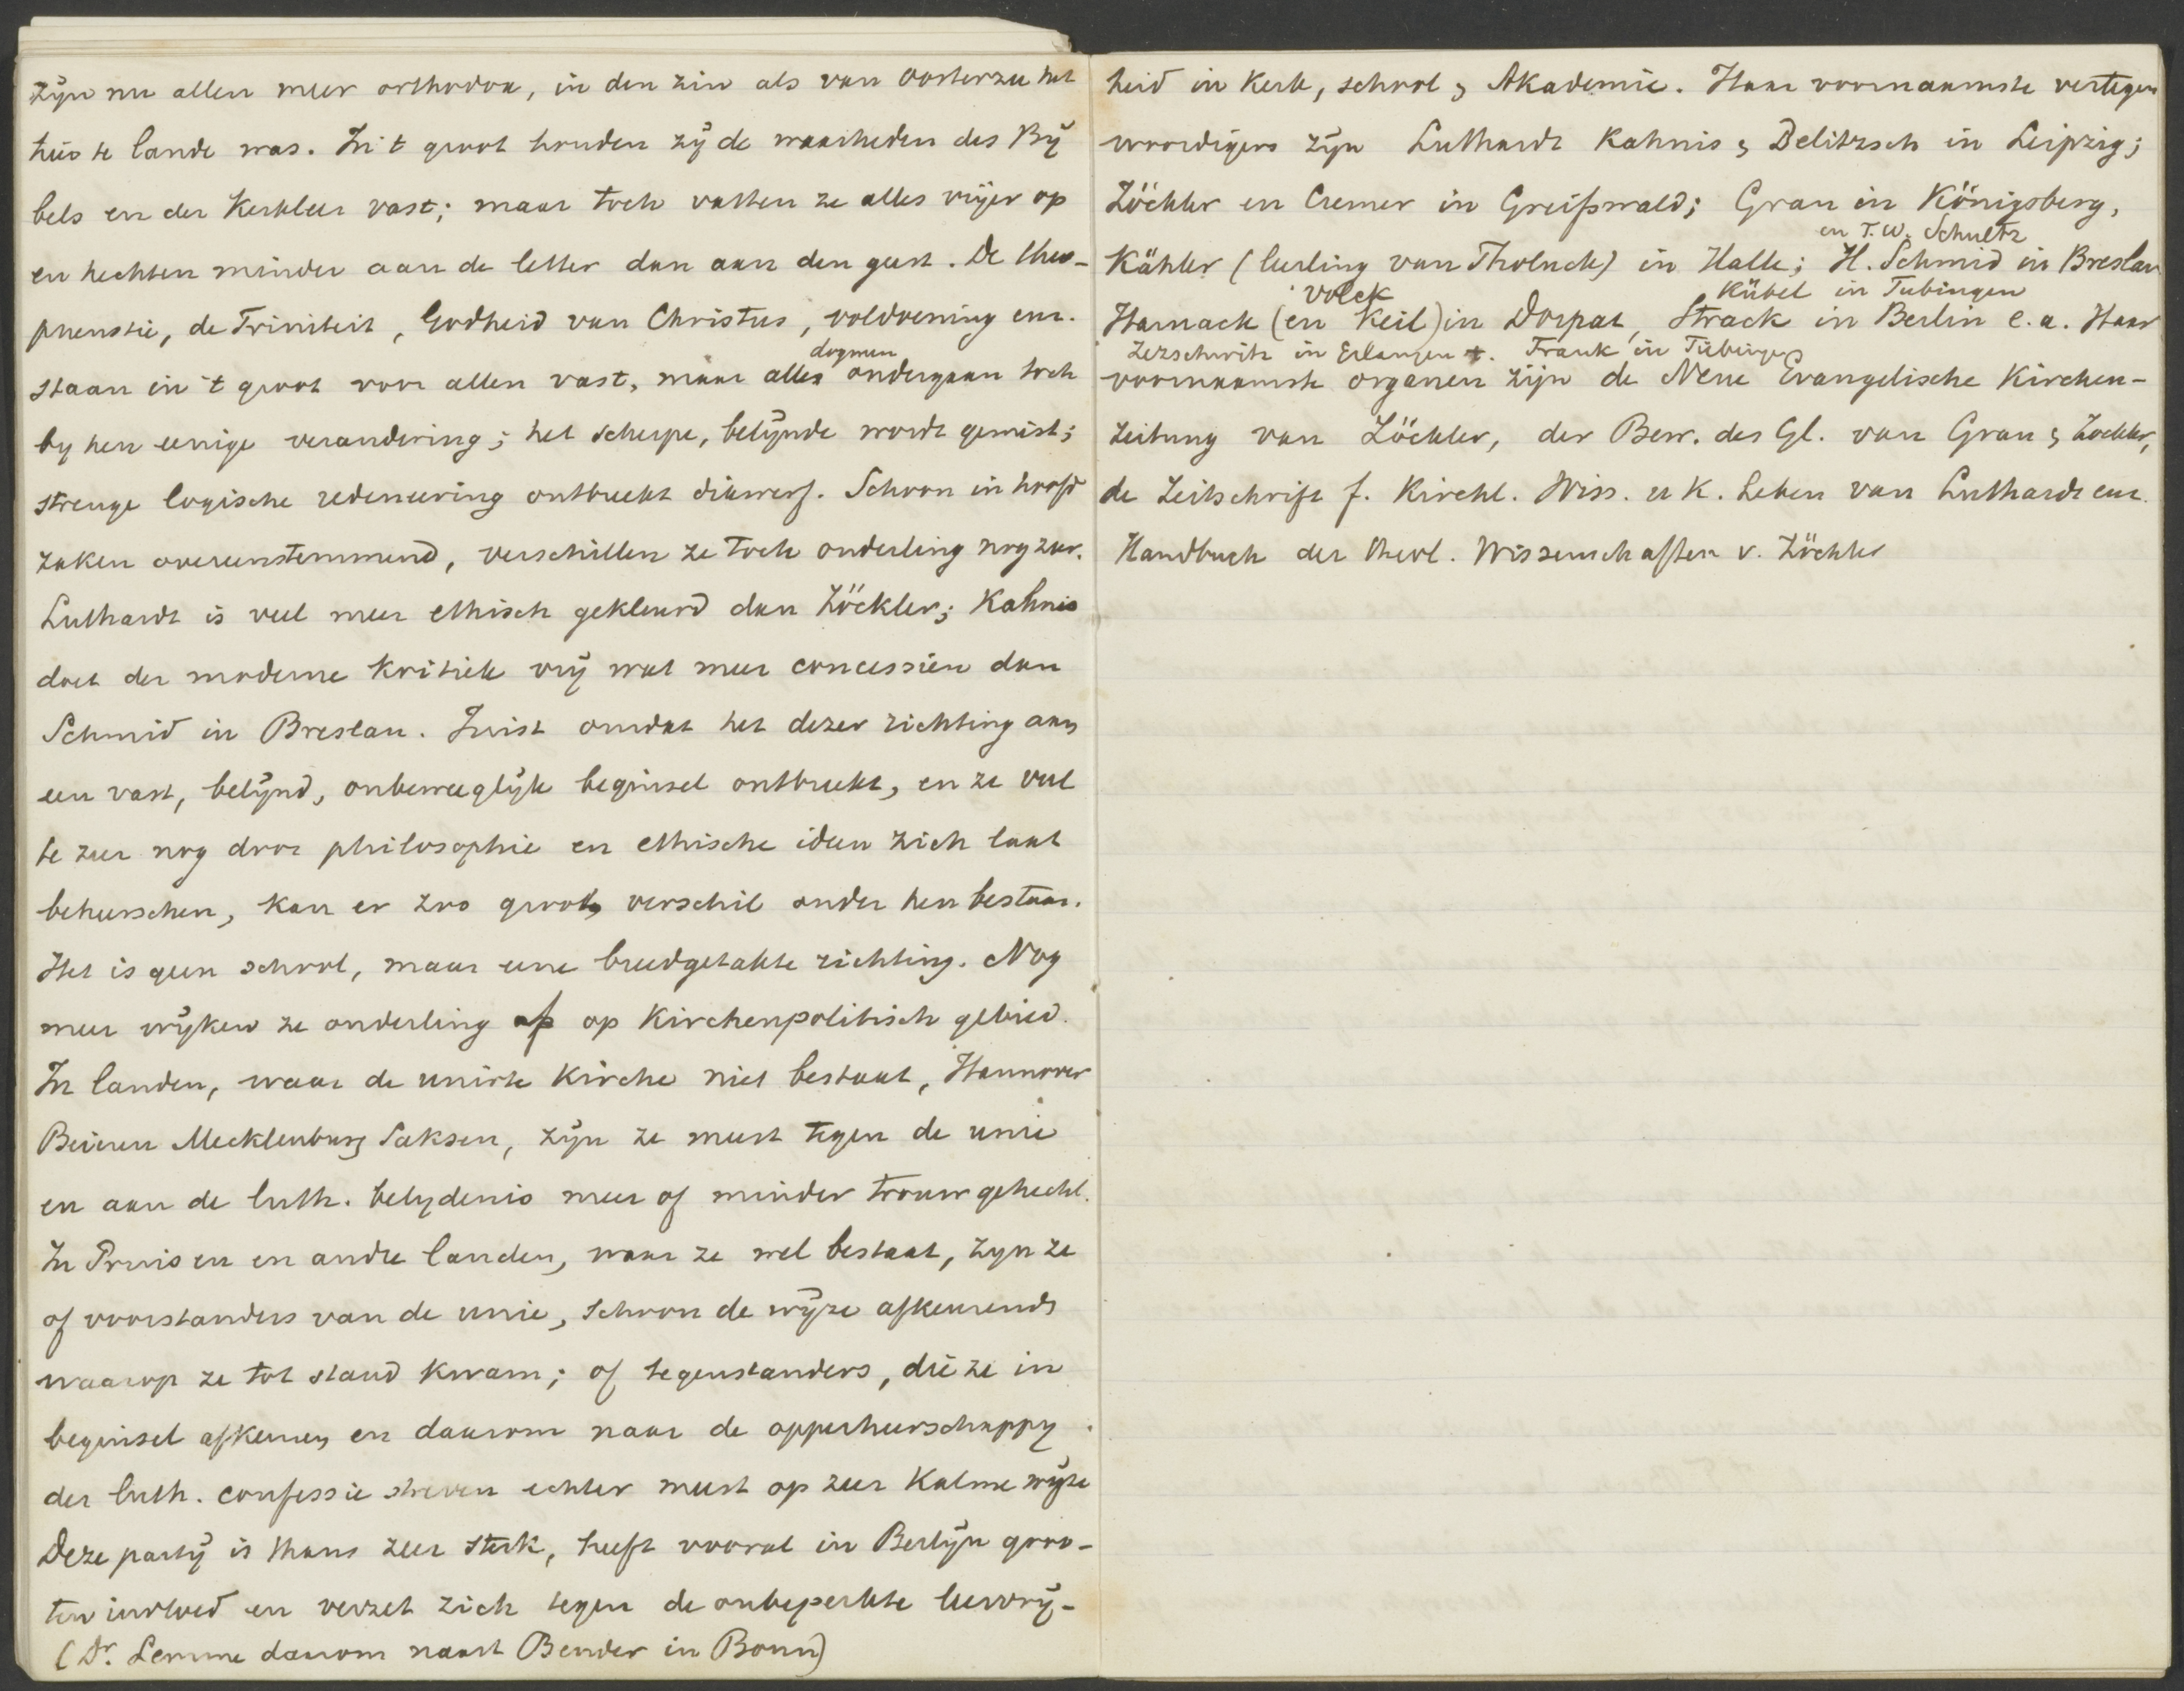 zijn nu allen meer orthodox, in den zin als van Oosterzee het
hier te lande was. In 't groot houden zij de waarheden des Bij
bels en der Kerkleer vast; maar toch vatten ze alles vrijer op
en hechten minder aan de letter dan aan den geest. De theo-
pneustie, de Triniteit, Godheid van Christus, voldoening enz.
staan in 't groot voor allen vast, maar alle dogmen ondergaan toch
by hen eenige verandering; het scherpe, belijnde wordt gemist;
strenge logische redeneering ontbreekt dikwerf. Schoon in hoofd
zaken overeenstemmend, verschillen ze toch onderling nog zeer.
Luthardt is veel meer ethisch gekleurd dan Zöckler; Kahnis
doet der moderne Kritiek vrij wat meer concessiën dan
Schmid in Breslau. Juist omdat het dezer richting aan
een vast, belijnd, onbeweeglijk beginsel ontbreekt, en ze veel
te zeer nog door philosophie en ethische ideen zich laat
beheerschen, kan er zoo groot verschil onder hen bestaan.
Het is geen school, maar eene breedgetakte richting. Nog
meer wijken ze onderling af op Kirchenpolitisch gebied.
In landen, waar de unirte Kirche niet bestaat, Hannover
Beieren Mecklenburg Saksen, zijn ze meest tegen de unie
en aan de luth. belydenis meer of minder trouw gehecht.
In Pruisen en andre landen, waar ze wel bestaat, zyn ze
of voorstanders van de unie, schoon de wijze afkeurend,
waarop ze tot stand kwam; of tegenstanders, die ze in
beginsel afkeuren en daarom naar de opperheerschappy
der luth. confessie streven echter meest op zeer Kalme wijze
Deze partij is thans zeer sterk, heeft vooral in Berlijn groo-
ten invloed en verzet zich tegen de onbeperkte leervrij-
(Dr. Lemme daarom naast Bender in Bonn)
heid in Kerk, school & Akademie. Haar voornaamste vertegen
woordigers zijn Luthardt Kahnis & Delitzsch in Leipzig;
Zöckler en Cremer in Greifswald; Grau in Königsberg,
en F.W. Schultz
Kähler (leerling van Tholuck) in Halle; H. Schmid in Breslau
Volck Kübel in Tubingen
Harnack (en Keil) in Dorpat, Strack in Berlin e.a. Haar
Zezschwitz in Erlangen +. Frank in Tübingen
voornaamste organen zijn de Neue Evangelische Kirchen-
zeitung van Zöckler, der Bew. des Gl. van Grau & Zockler,
de Zeitschrift f. Kirchl. Wiss. u K. Leben van Luthardt enz.
Handbuch der theol. Wissenschaften v. Zöckler